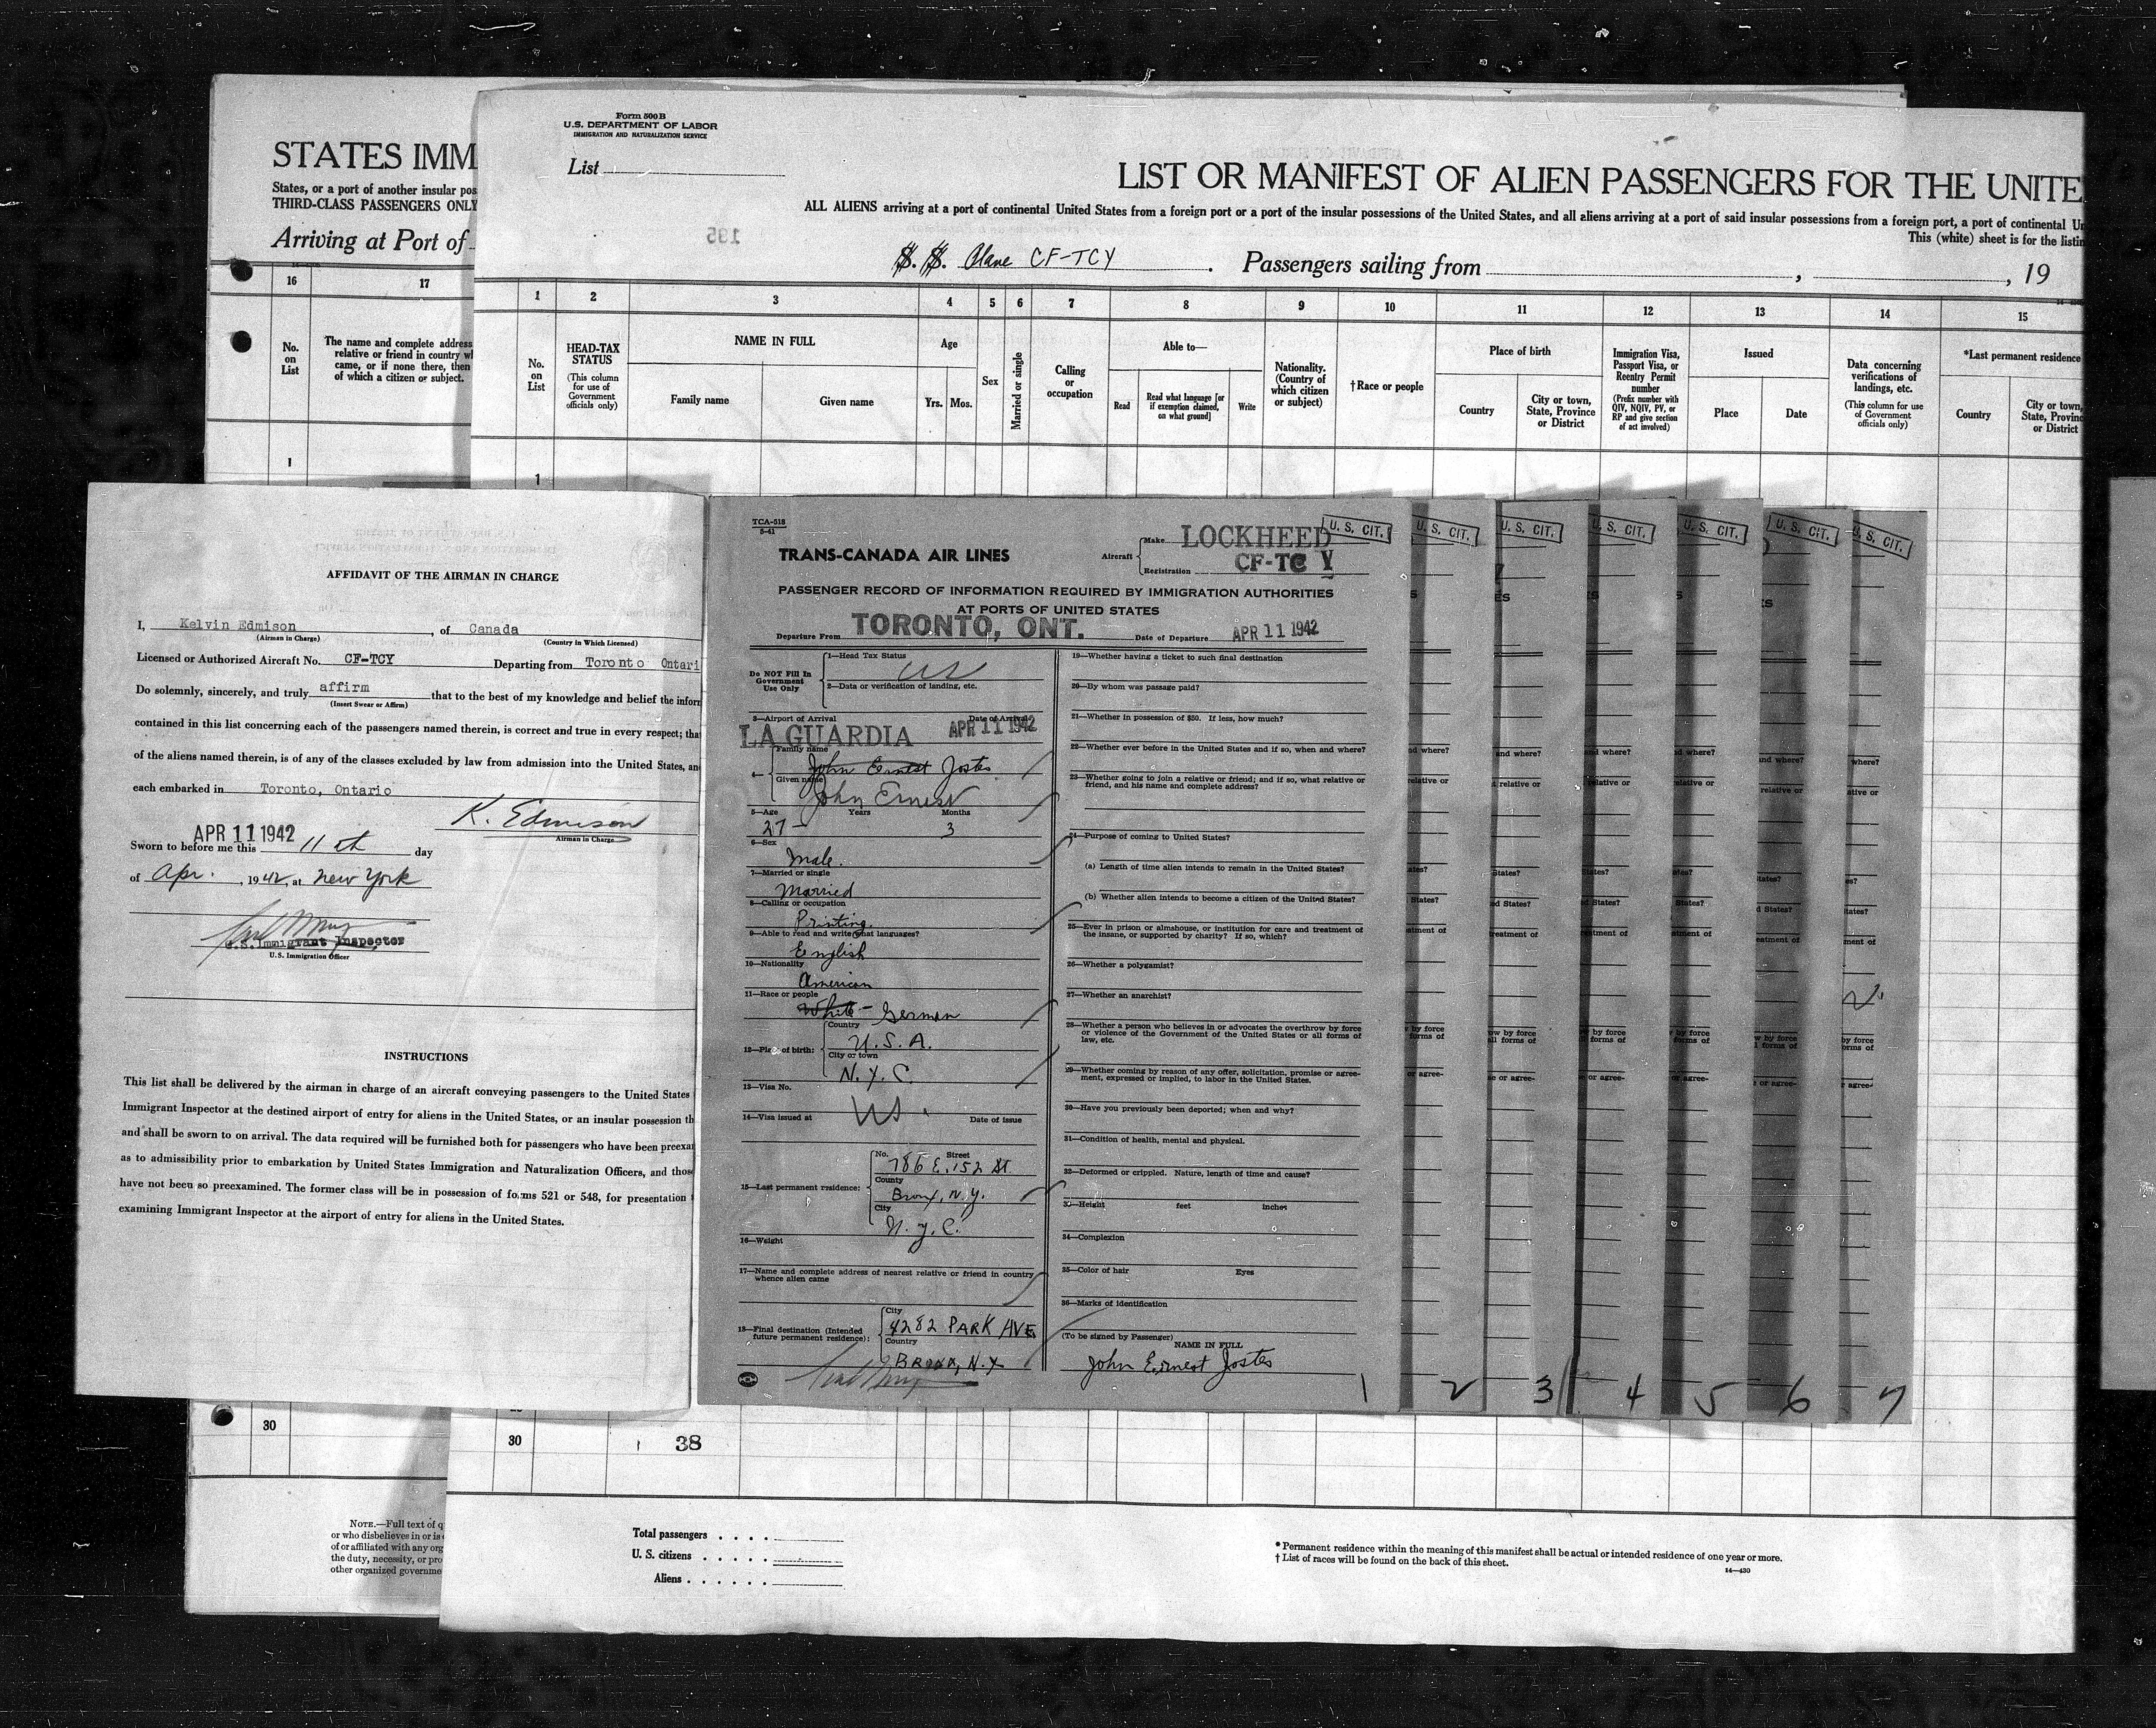 STATES IMM
States, or a port of another insular pos
THIRD-CLASS PASSENGERS ONLY
Arriving at Port of
16 17
No. on List
The name and complete address
relative or friend in country wh
came, or if none there, then
of which a citizen or subject.
1
30
NOTE.—Full text of q
or who disbelieves in or is
of or affiliated with any org
the duty, necessity, or pro
other organized governme
Form 500 B
U.S. DEPARTMENT OF LABOR
IMMIGRATION AND NATURALIZATION SERVICE
List
LIST OR MANIFEST OF ALIEN PASSENGERS FOR THE UNITE
ALL ALIENS arriving at a port of continental United States from a foreign port or a port of the insular possessions of the United States, and all aliens arriving at a port of said insular possessions from a foreign port, a port of continental Un
This (white) sheet is for the listin
195
S. S. Plane CF-TCY . Passengers sailing from , , 19
1 2 3 4 5 6 7 8 9 10 11 12 13 14 15
No. on List
HEAD-TAX STATUS
(This column for use of Government officials only)
NAME IN FULL
Family name Given name
Age
Yrs. Mos.
Sex
Married or single
Calling or occupation
Able to—
Read
Read what language [or if exemption claimed, on what ground]
Write
Nationality. (Country of which citizen or subject)
†Race or people
Place of birth
Country
City or town, State, Province or District
Immigration Visa, Passport Visa, or Reentry Permit number
(Prefix number with QIV, NQIV, PV, or RP and give section of act involved)
Issued
Place Date
Data concerning verifications of landings, etc.
(This column for use of Government officials only)
*Last permanent residence
Country
City or town, State, Provinc or District
1
AFFIDAVIT OF THE AIRMAN IN CHARGE
I, Kelvin Edmison , of Canada
(Airman in Charge) (Country in Which Licensed)
Licensed or Authorized Aircraft No. CF-TCY Departing from Toronto Ontari
Do solemnly, sincerely, and truly affirm that to the best of my knowledge and belief the inform
(Insert Swear or Affirm)
contained in this list concerning each of the passengers named therein, is correct and true in every respect; tha
of the aliens named therein, is of any of the classes excluded by law from admission into the United States, an
each embarked in Toronto, Ontario
K. Edmison
Airman in Charge
APR 11 1942
Sworn to before me this 11th day
of Apr. , 1942, at New York
U.S. Immigrant Inspector
U.S. Immigration Officer
INSTRUCTIONS
This list shall be delivered by the airman in charge of an aircraft conveying passengers to the United States
Immigrant Inspector at the destined airport of entry for aliens in the United States, or an insular possession th
and shall be sworn to on arrival. The data required will be furnished both for passengers who have been preexa
as to admissibility prior to embarkation by United States Immigration and Naturalization Officers, and thos
have not been so preexamined. The former class will be in possession of forms 521 or 548, for presentation
examining Immigrant Inspector at the airport of entry for aliens in the United States.
TCA-518
5-41
TRANS-CANADA AIR LINES
Aircraft
Make LOCKHEED
Registration CF-TC Y
U. S. CIT.
PASSENGER RECORD OF INFORMATION REQUIRED BY IMMIGRATION AUTHORITIES
AT PORTS OF UNITED STATES
Departure From TORONTO, ONT. Date of Departure APR 11 1942
Do NOT Fill In Government Use Only
1—Head Tax Status
US
2—Data or verification of landing, etc.
3—Airport of Arrival Date of Arrival
LA GUARDIA APR 11 1942
4—
Family name
John Ernest Jostes
Given name
John Ernest
5—Age Years Months
27 – 3
6—Sex
Male.
7—Married or single
Married
8—Calling or occupation
Printing.
9—Able to read and write what languages?
English
10—Nationality
American
11—Race or people
White – German
12—Place of birth:
Country
U.S.A.
City or town
N.Y.C.
13—Visa No.
US.
14—Visa issued at Date of issue
15—Last permanent residence:
No. Street
786 E. 152 St
County
Bronx, N.Y.
City
N.Y.C.
16—Weight
17—Name and complete address of nearest relative or friend in country
whence alien came
18—Final destination (Intended
future permanent residence):
City
4282 PARK AVE
Country
BRONX, N.Y
19—Whether having a ticket to such final destination
20—By whom was passage paid?
21—Whether in possession of $50. If less, how much?
22—Whether ever before in the United States and if so, when and where?
23—Whether going to join a relative or friend; and if so, what relative or
friend, and his name and complete address?
24—Purpose of coming to United States?
(a) Length of time alien intends to remain in the United States?
(b) Whether alien intends to become a citizen of the United States?
25—Ever in prison or almshouse, or institution for care and treatment of
the insane, or supported by charity? If so, which?
26—Whether a polygamist?
27—Whether an anarchist?
28—Whether a person who believes in or advocates the overthrow by force
or violence of the Government of the United States or all forms of
law, etc.
29—Whether coming by reason of any offer, solicitation, promise or agree-
ment, expressed or implied, to labor in the United States.
30—Have you previously been deported; when and why?
31—Condition of health, mental and physical.
32—Deformed or crippled. Nature, length of time and cause?
33—Height feet inches
34—Complexion
35—Color of hair Eyes
36—Marks of identification
(To be signed by Passenger)
NAME IN FULL
John Ernest Jostes
U. S. CIT. U. S. CIT. U. S. CIT. U. S. CIT. U. S. CIT. U. S. CIT.
1 2 3 4 5 6 7
30 38
Total passengers . . . .
U. S. citizens . . . . .
Aliens . . . . . .
* Permanent residence within the meaning of this manifest shall be actual or intended residence of one year or more.
† List of races will be found on the back of this sheet.
14—430